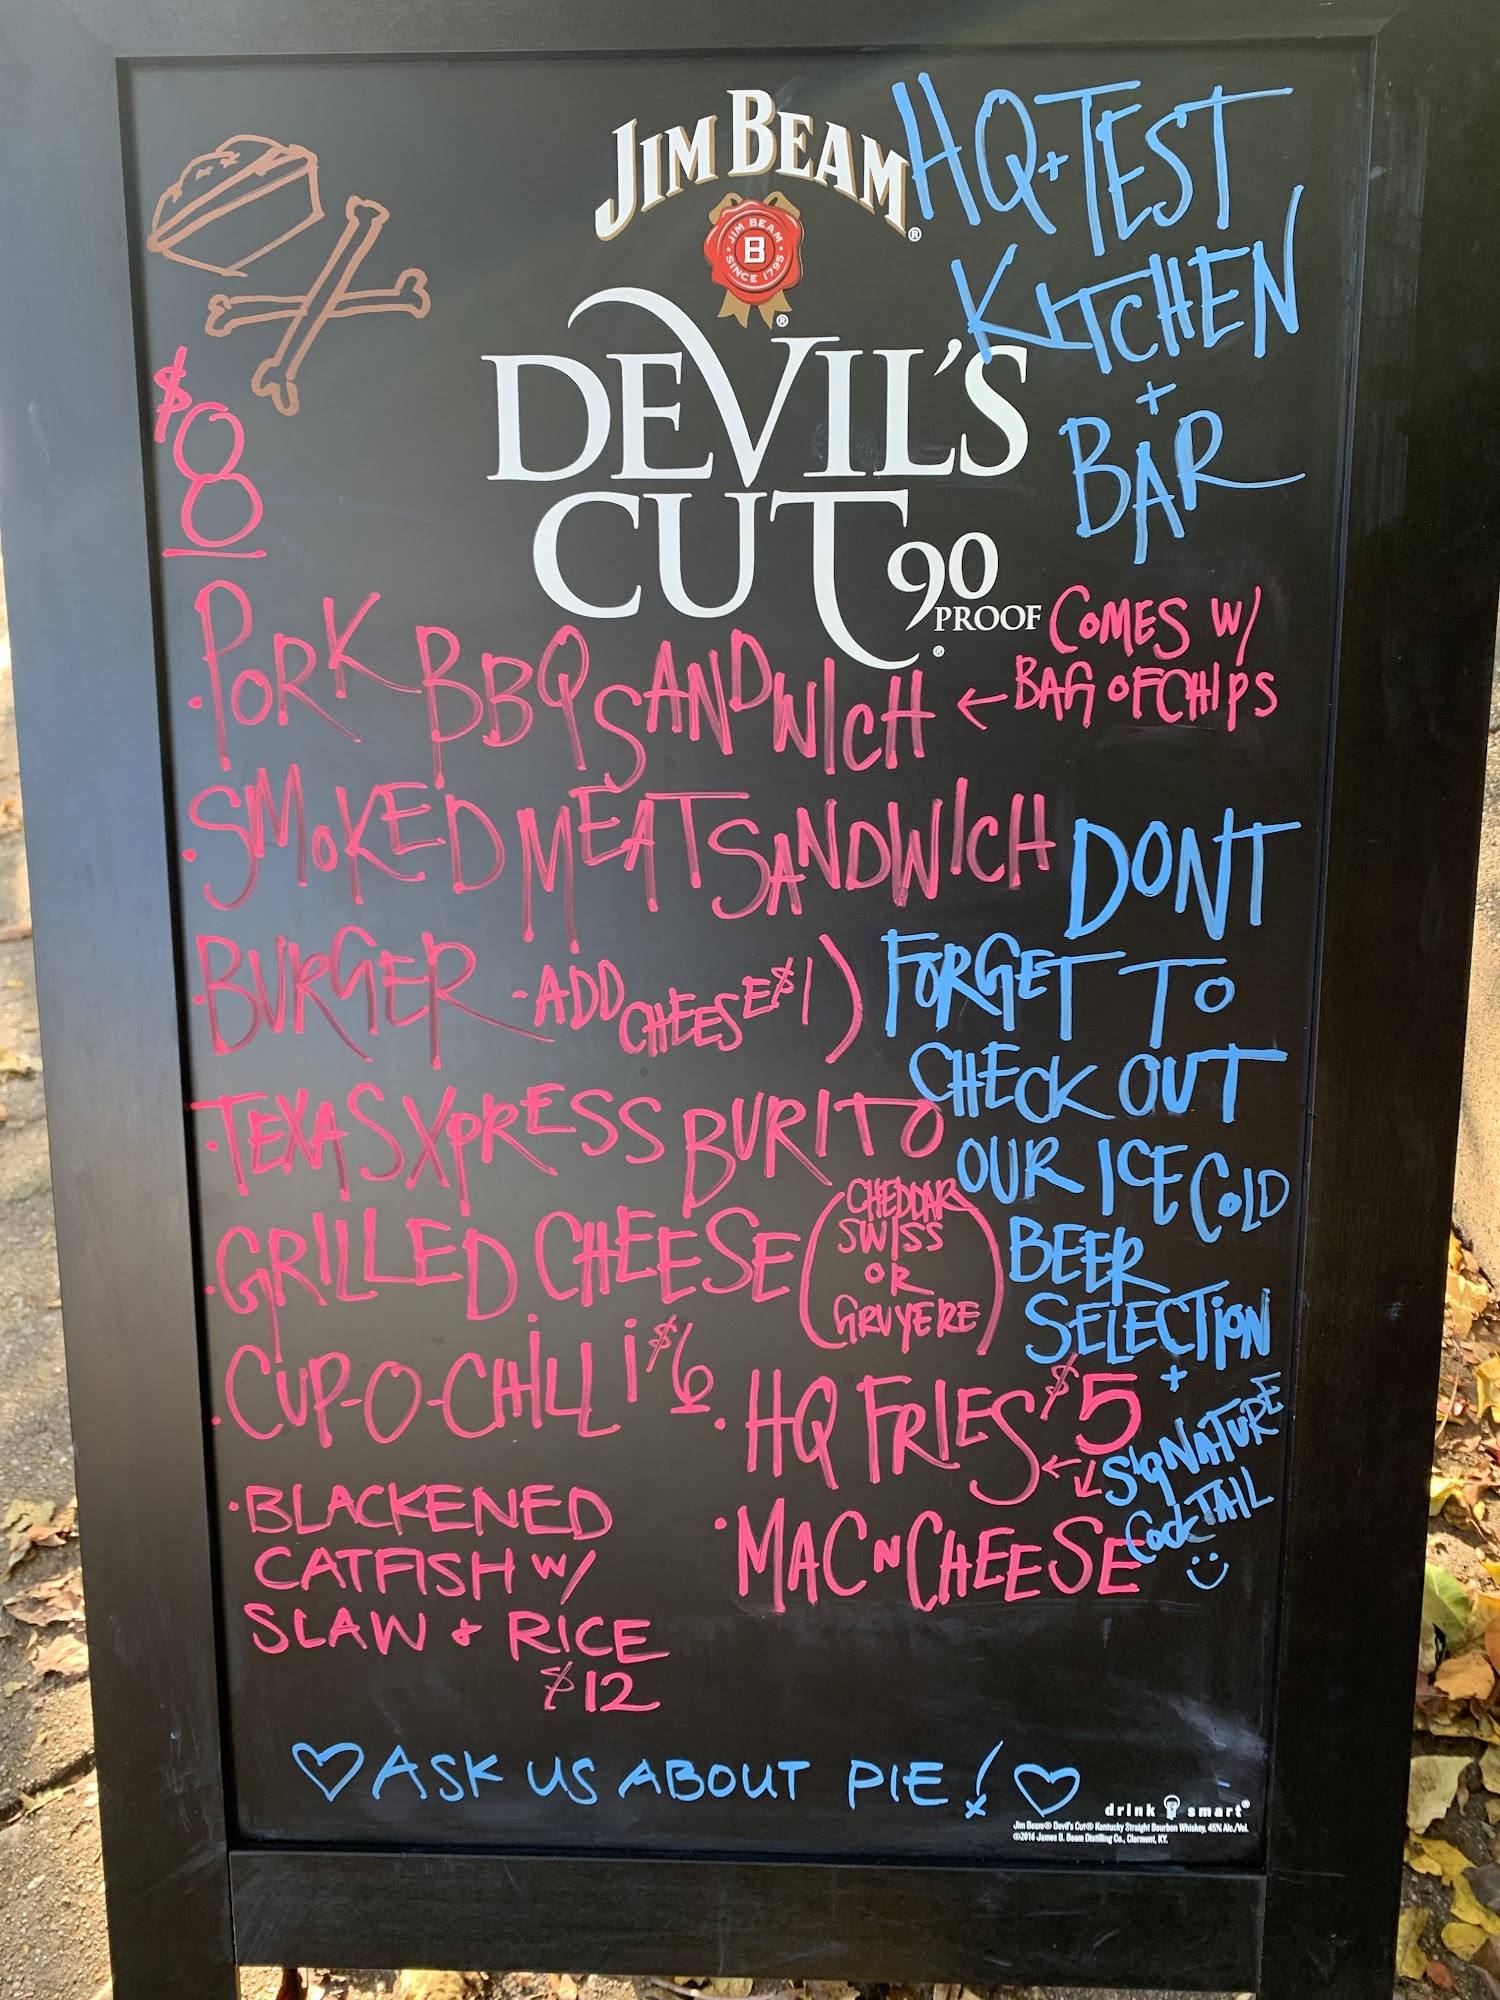 JIM BEAM®
JIM BEAM
B
SINCE 1795
®
DEVIL'S
CUT 90
PROOF
®
HQ + TEST
KITCHEN
+
BAR
$8
COMES W/
BAG OF CHIPS
· PORK BBQ SANDWICH ←
· SMOKED MEAT SANDWICH
· BURGER - ADD CHEESE $1)
· TEXAS XPRESS BURITO
· GRILLED CHEESE (CHEDDAR
SWISS
OR
GRUYERE)
· CUP-O-CHILLI $6
· HQ FRIES $5
· BLACKENED
CATFISH W/
SLAW + RICE
$12
· MAC N CHEESE
DONT
FORGET TO
CHECK OUT
OUR ICE COLD
BEER
SELECTION
+
SIGNATURE
COCKTAIL
♡ ASK US ABOUT PIE! ♡
drink smart®
Jim Beam® Devil's Cut® Kentucky Straight Bourbon Whiskey, 45% Alc./Vol.
©2016 James B. Beam Distilling Co., Clermont, KY.